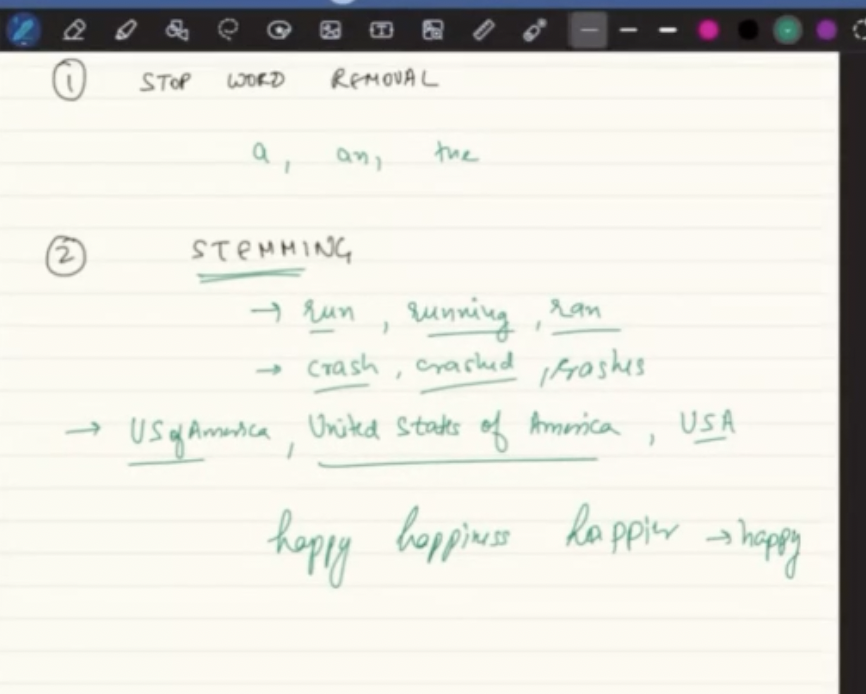 ① STOP WORD REMOVAL
a, an, the
② STEMMING
→ run, running, ran
→ crash, crashed, crashes
→ US of America, United States of America, USA
happy happiness happier → happy